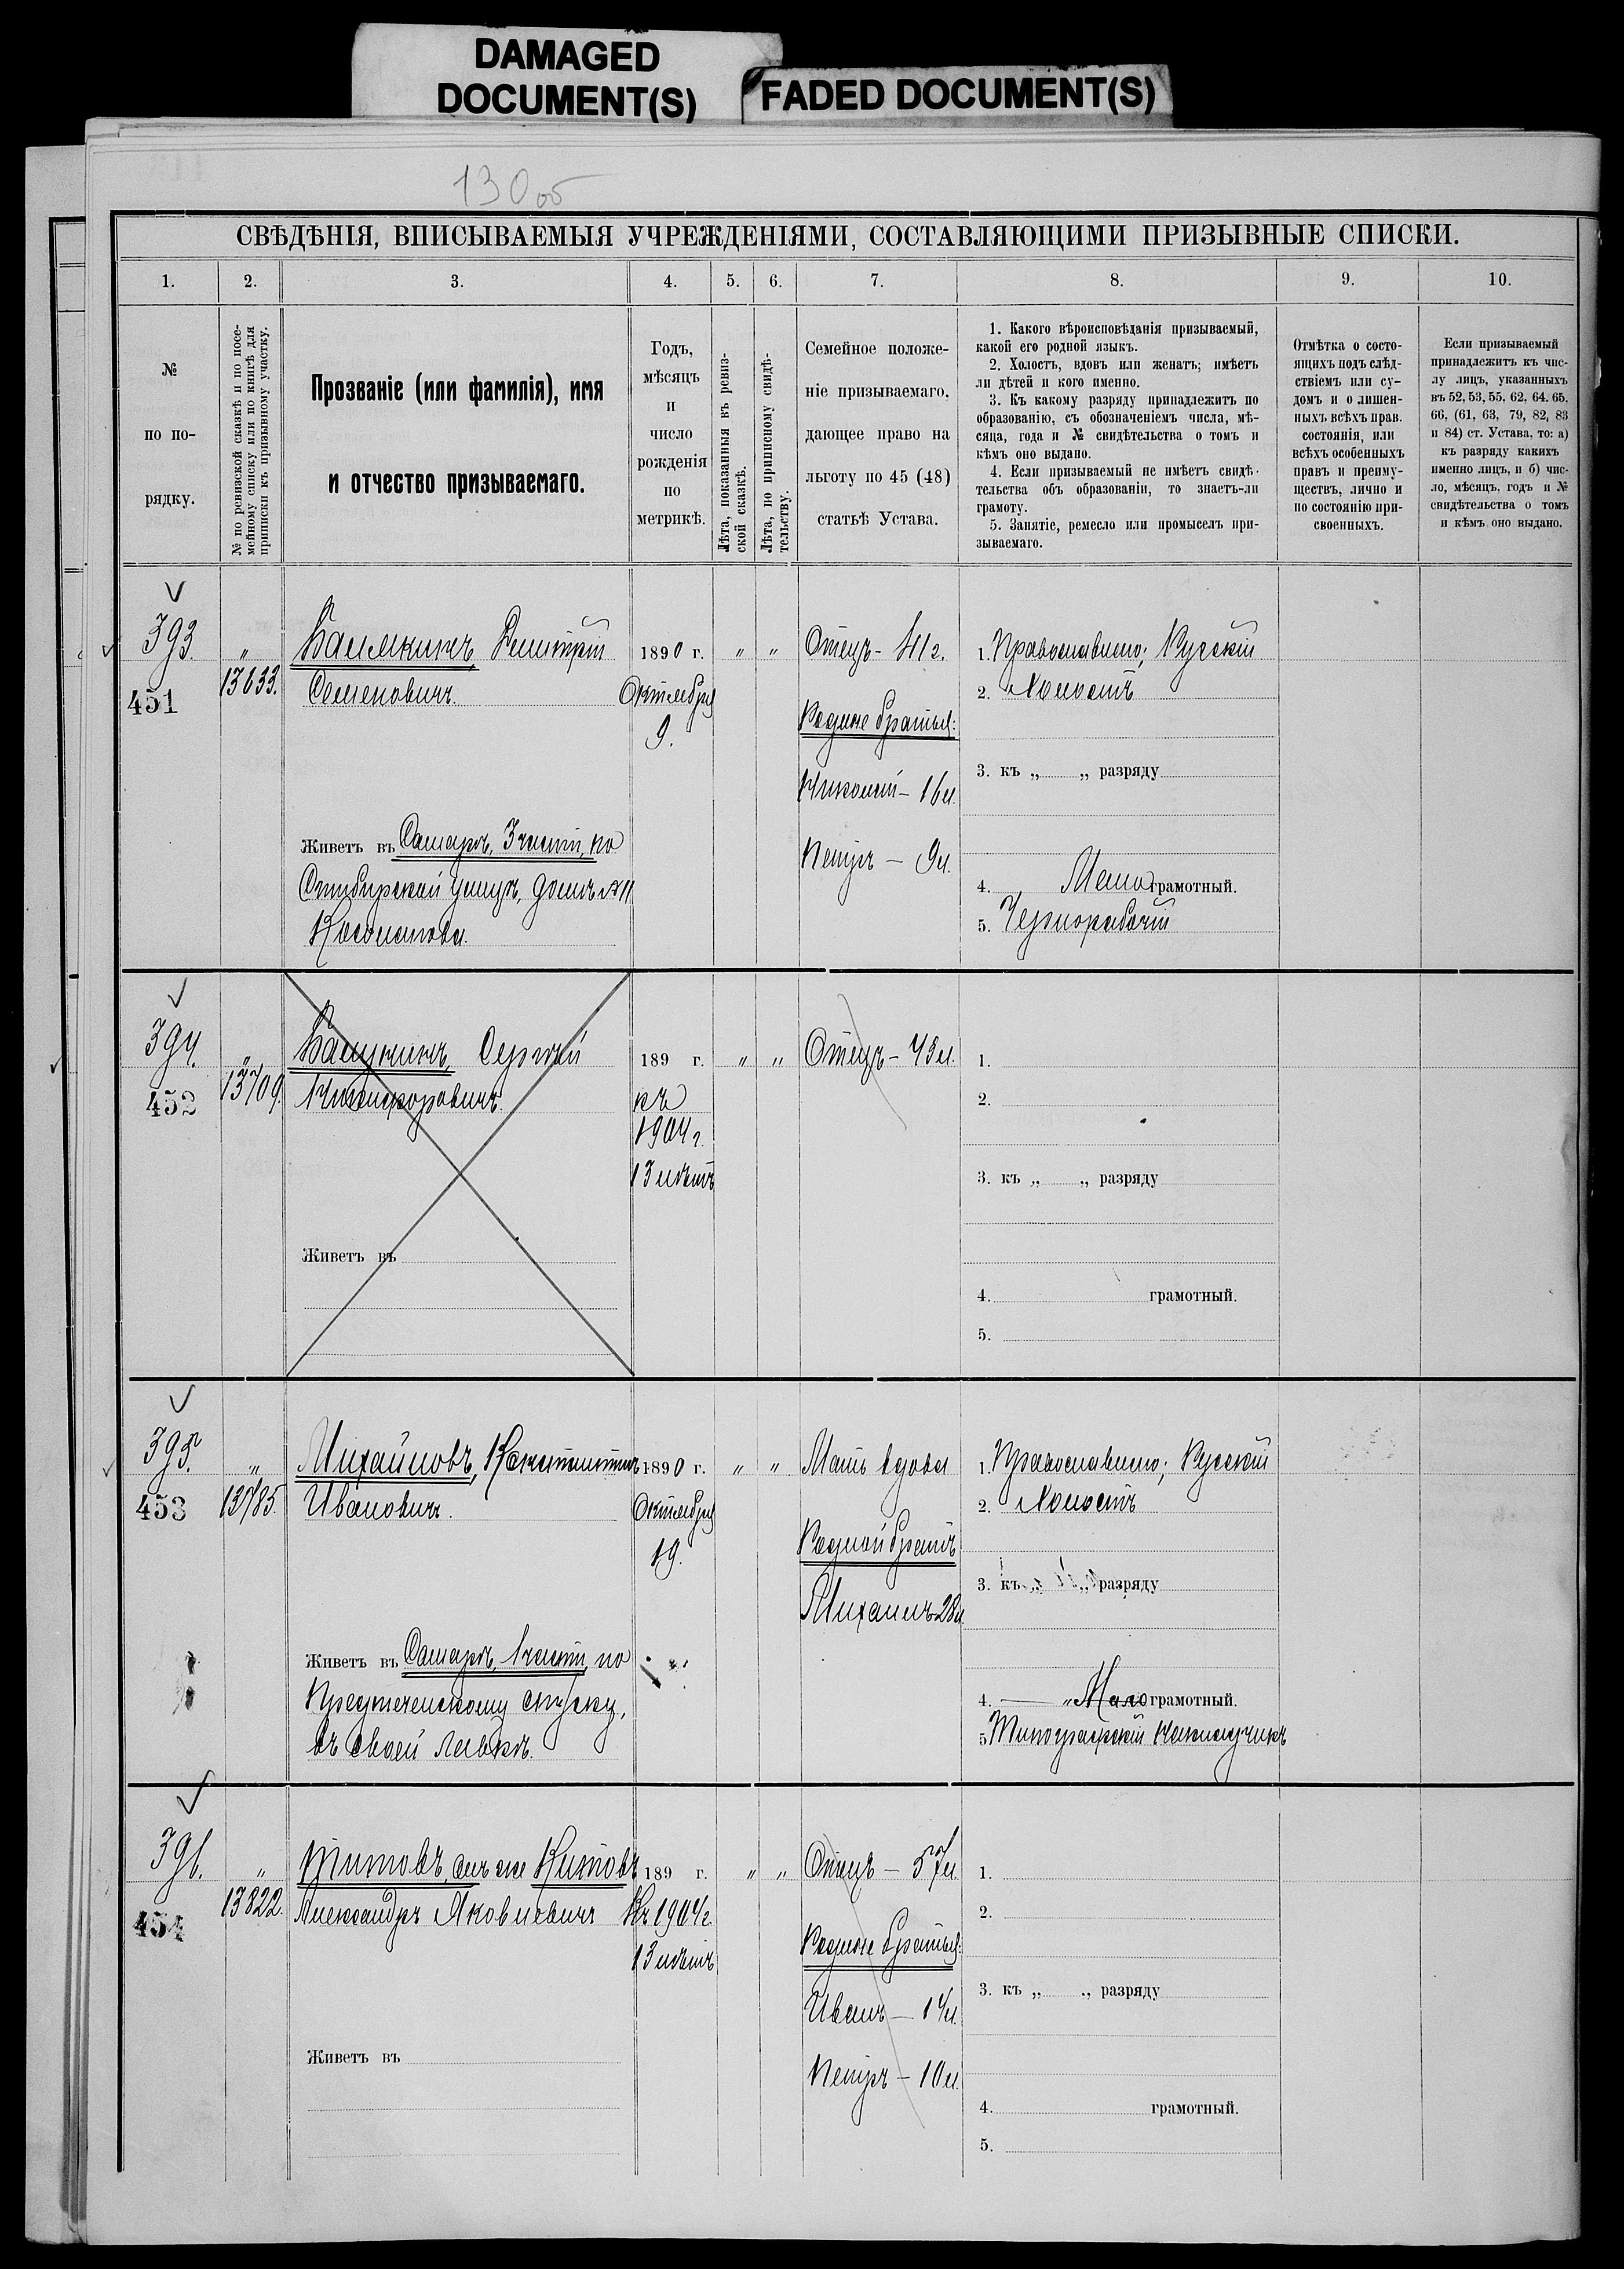 DAMAGED
DOCUMENT(S)
FADED DOCUMENT(S)
130 об
СВѢДѢНІЯ, ВПИСЫВАЕМЫЯ УЧРЕЖДЕНІЯМИ, СОСТАВЛЯЮЩИМИ ПРИЗЫВНЫЕ СПИСКИ.
1. 2. 3. 4. 5. 6. 7. 8. 9. 10.
№
по по-
рядку.
№ по ревизской сказкѣ и по посе-
мейному списку или по книгѣ для
приписки къ призывному участку.
Прозваніе (или фамилія), имя
и отчество призываемаго.
Годъ,
мѣсяцъ
и
число
рожденія
по
метрикѣ.
Лѣта, показанныя въ ревиз-
ской сказкѣ.
Лѣта, по приписному свидѣ-
тельству.
Семейное положе-
ніе призываемаго,
дающее право на
льготу по 45 (48)
статьѣ Устава.
1. Какого вѣроисповѣданія призываемый,
какой его родной языкъ.
2. Холостъ, вдовъ или женатъ; имѣетъ
ли дѣтей и кого именно.
3. Къ какому разряду принадлежитъ по
образованію, съ обозначеніемъ числа, мѣ-
сяца, года и № свидѣтельства о томъ и
кѣмъ оно выдано.
4. Если призываемый не имѣетъ свидѣ-
тельства объ образованіи, то знаетъ-ли
грамоту.
5. Занятіе, ремесло или промыселъ при-
зываемаго.
Отмѣтка о состо-
ящихъ подъ слѣд-
ствіемъ или су-
домъ и о лишен-
ныхъ всѣхъ прав.
состоянія, или
всѣхъ особенныхъ
правъ и преиму-
ществъ, лично и
по состоянію при-
своенныхъ.
Если призываемый
принадлежитъ къ чис-
лу лицъ, указанныхъ
въ 52, 53, 55, 62, 64, 65,
66, (61, 63, 79, 82, 83
и 84) ст. Устава, то: а)
къ разряду какихъ
именно лицъ, и б) чис-
ло, мѣсяцъ, годъ и №
свидѣтельства о томъ
и кѣмъ оно выдано.
393.
451
"
13633.
Дмитрій
Семеновичъ.
Живетъ въ Самарѣ, 3 части, по
Симбирской улицѣ, домъ № 11
1890 г.
Октября
9.
" "
Отецъ - 41 г.
Родные братья:
Николай - 16 л.
Петръ - 9 л.
1. Православнаго; Русскій
2. Холостъ
3. къ „ „ разряду
4. Мало грамотный.
5. Чернорабочій
394.
452
"
13709.
Сергѣй
Никифоровичъ.
Живетъ въ
189 г.
къ
1904 г.
13 лѣтъ
" "
Отецъ - 43 л.
1.
2.
3. къ „ „ разряду
4. грамотный.
5.
395.
453
"
13785.
Михайловъ, Константинъ
Ивановичъ.
Живетъ въ Самарѣ, 1 части, по
Предтеченскому спуску,
въ своей лавкѣ.
1890 г.
Октября
19.
" "
Мать вдова
Родной братъ
Михаилъ 28 л.
1. Православнаго; Русскій
2. Холостъ
3. къ „ „ разряду
4. — „ Мало грамотный.
5. Типографскій накладчикъ
396.
454
"
13822.
Титовъ, онъ же Китовъ
Александръ Яковлевичъ
Живетъ въ
189 г.
Къ 1904 г.
13 лѣтъ
" "
Отецъ - 57 л.
Родные братья:
Иванъ - 14 л.
Петръ - 10 л.
1.
2.
3. къ „ „ разряду
4. грамотный.
5.